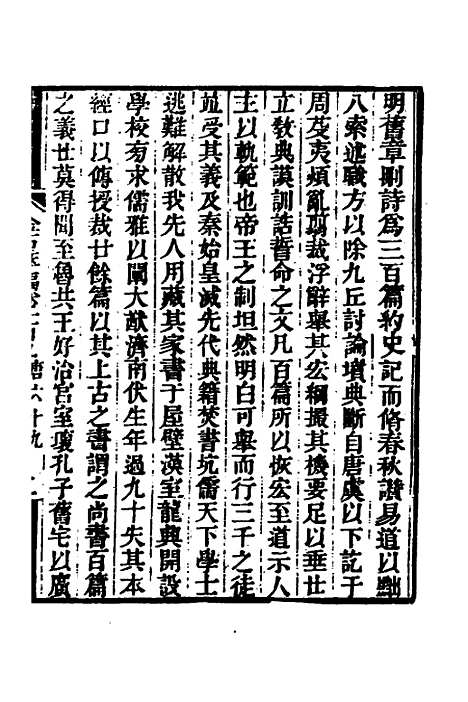 明舊章刪詩爲三百篇約史記而脩春秋讚易道以黜
八索述職方以除九丘討論墳典斷自唐虞以下訖于
周芟夷煩亂翦裁浮辭舉其宏綱撮其機要足以垂世
立敎典謨訓誥誓命之文凡百篇所以恢宏至道示人
主以軌範也帝王之制坦然明白可舉而行三千之徒
並受其義及秦始皇滅先代典籍焚書坑儒天下學士
逃難解散我先人用藏其家書于屋壁漢室龍興開設
學校旁求儒雅以闡大猷濟南伏生年過九十失其本
經口以傳授裁廿餘篇以其上古之書謂之尚書百篇
之義世莫得聞至魯共王好治宮室壞孔子舊宅以廣